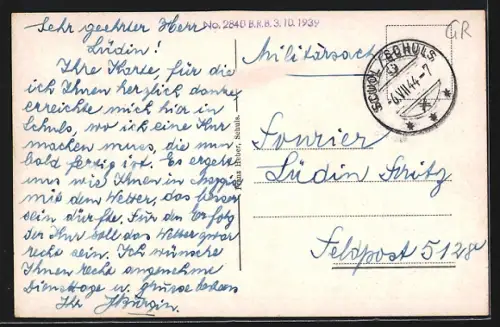 Sehr geehrter Herr
Lüdin!
Ihre Karte, für die
ich Ihnen herzlich danke
erreichte mich hier in
Schuls, wo ich eine Kur
machen muss, die nun
bald fertig ist. Es ergeht
uns wie Ihnen in
mit dem Wetter, das besser
sein dürfte. Für den Erfolg
der Kur soll das Wetter zwar
recht sein. Ich wünsche
Ihnen recht angenehme
Diensttage u. grüsse bestens
Ihr
No. 2840 B.R.B. 3.10.1939
GR
Militärsache
SCUOL/SCHULS
-6.VII.44-7
Fourier
Lüdin Fritz
Feldpost 5128